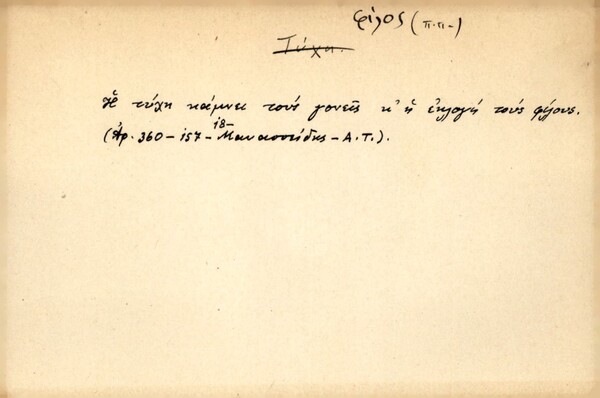 φίλος (π.π-)
Τύχη.
Ἡ τύχη κάμνει τούς γονεῖς κ' ἡ ἐκλογή τούς φίλους.
(Ἀρ. 360 - 157 - 18 - Μανασσείδης - Α.Τ.).